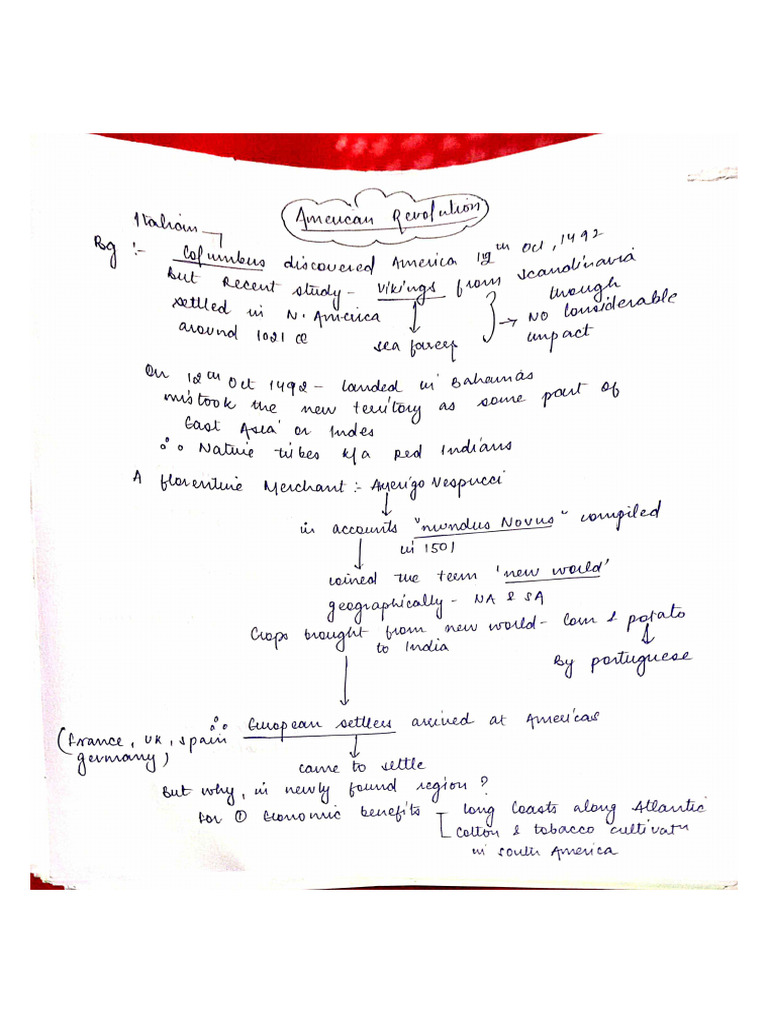 American Revolution
Italian
Bg :- Columbus discovered America 12th Oct, 1492
But Recent study - Vikings from Scandinavia
settled in N. America though
around 1021 CE → NO Considerable
impact
sea farer
On 12th Oct 1492 - landed in Bahamas
mistook the new territory as some part of
East Asia or Indes
∴ Native tribes k/a Red Indians
A florentine Merchant :- Amerigo Vespucci
in accounts "mundus Novus" compiled
in 1501
coined the term 'new world'
geographically - NA & SA
Crops brought from new world - Corn & potato
to India
By portuguese
∴ European settlers arrived at Americas
(France, UK, Spain
germany)
came to settle
But why, in newly found region?
for ① Economic benefits - long Coasts along Atlantic
Cotton & tobacco cultivatn
in South America